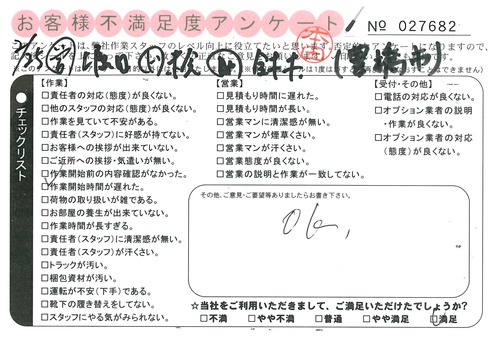 お客様不満足度アンケート
№ 027682
チェックリスト
【作業】
□責任者の対応(態度)が良くない。
□他のスタッフの対応(態度)が良くない。
□作業を見ていて不安がある。
□責任者(スタッフ)に好感が持てない。
□お客様への挨拶が出来ていない。
□ご近所への挨拶・気遣いが無い。
□作業開始前の内容確認がなかった。
□作業開始時間が遅れた。
□荷物の取り扱いが雑である。
□お部屋の養生が出来ていない。
□作業時間が長すぎる。
□責任者(スタッフ)に清潔感が無い。
□責任者(スタッフ)が汗くさい。
□トラックが汚い。
□梱包資材が汚い。
□運転が不安(下手)である。
□靴下の履き替えをしてない。
□スタッフにやる気がみられない。
【営業】
□見積もり時間に遅れた。
□見積もり時間が長い。
□営業マンに清潔感が無い。
□営業マンが煙草くさい。
□営業マンが汗くさい。
□営業態度が良くない。
□営業の説明と作業が一致してない。
【受付・その他】
□電話の対応が良くない。
□オプション業者の説明
・作業が良くない。
□オプション業者の対応
(態度)が良くない。
その他、ご意見・ご要望等ありましたらお書き下さい。
OK,
☆当社をご利用いただきまして、ご満足いただけたでしょうか?
□不満 □やや不満 □普通 □やや満足 □満足